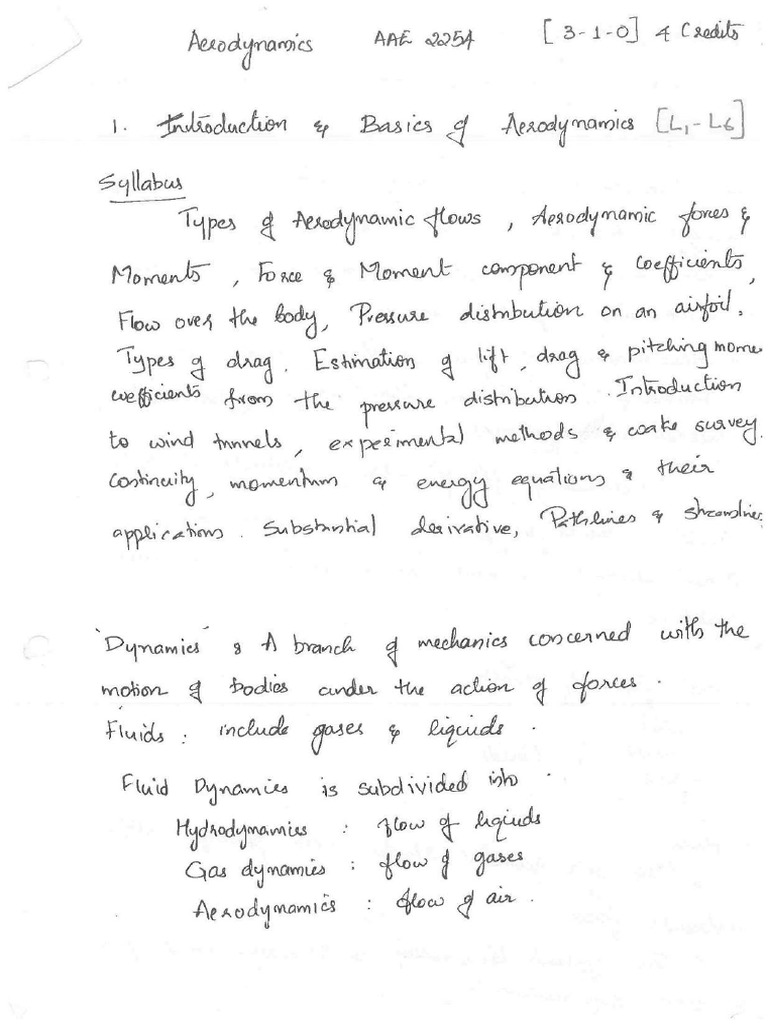 Aerodynamics AAE 2254 [3-1-0] 4 Credits
1. Introduction & Basics of Aerodynamics [L1-L6]
Syllabus
Types of Aerodynamic flows, Aerodynamic forces &
Moments, Force & Moment component & coefficients,
Flow over the body, Pressure distribution on an airfoil.
Types of drag. Estimation of lift, drag & pitching mome
coefficients from the pressure distribution. Introduction
to wind tunnels, experimental methods & wake survey.
Continuity, momentum & energy equations & their
applications. Substantial derivative, Pathlines & streamlines
"Dynamics": A branch of mechanics concerned with the
motion of bodies under the action of forces.
Fluids: include gases & liquids.
Fluid Dynamics is subdivided into.
Hydrodynamics : flow of liquids
Gas dynamics : flow of gases
Aerodynamics : flow of air.